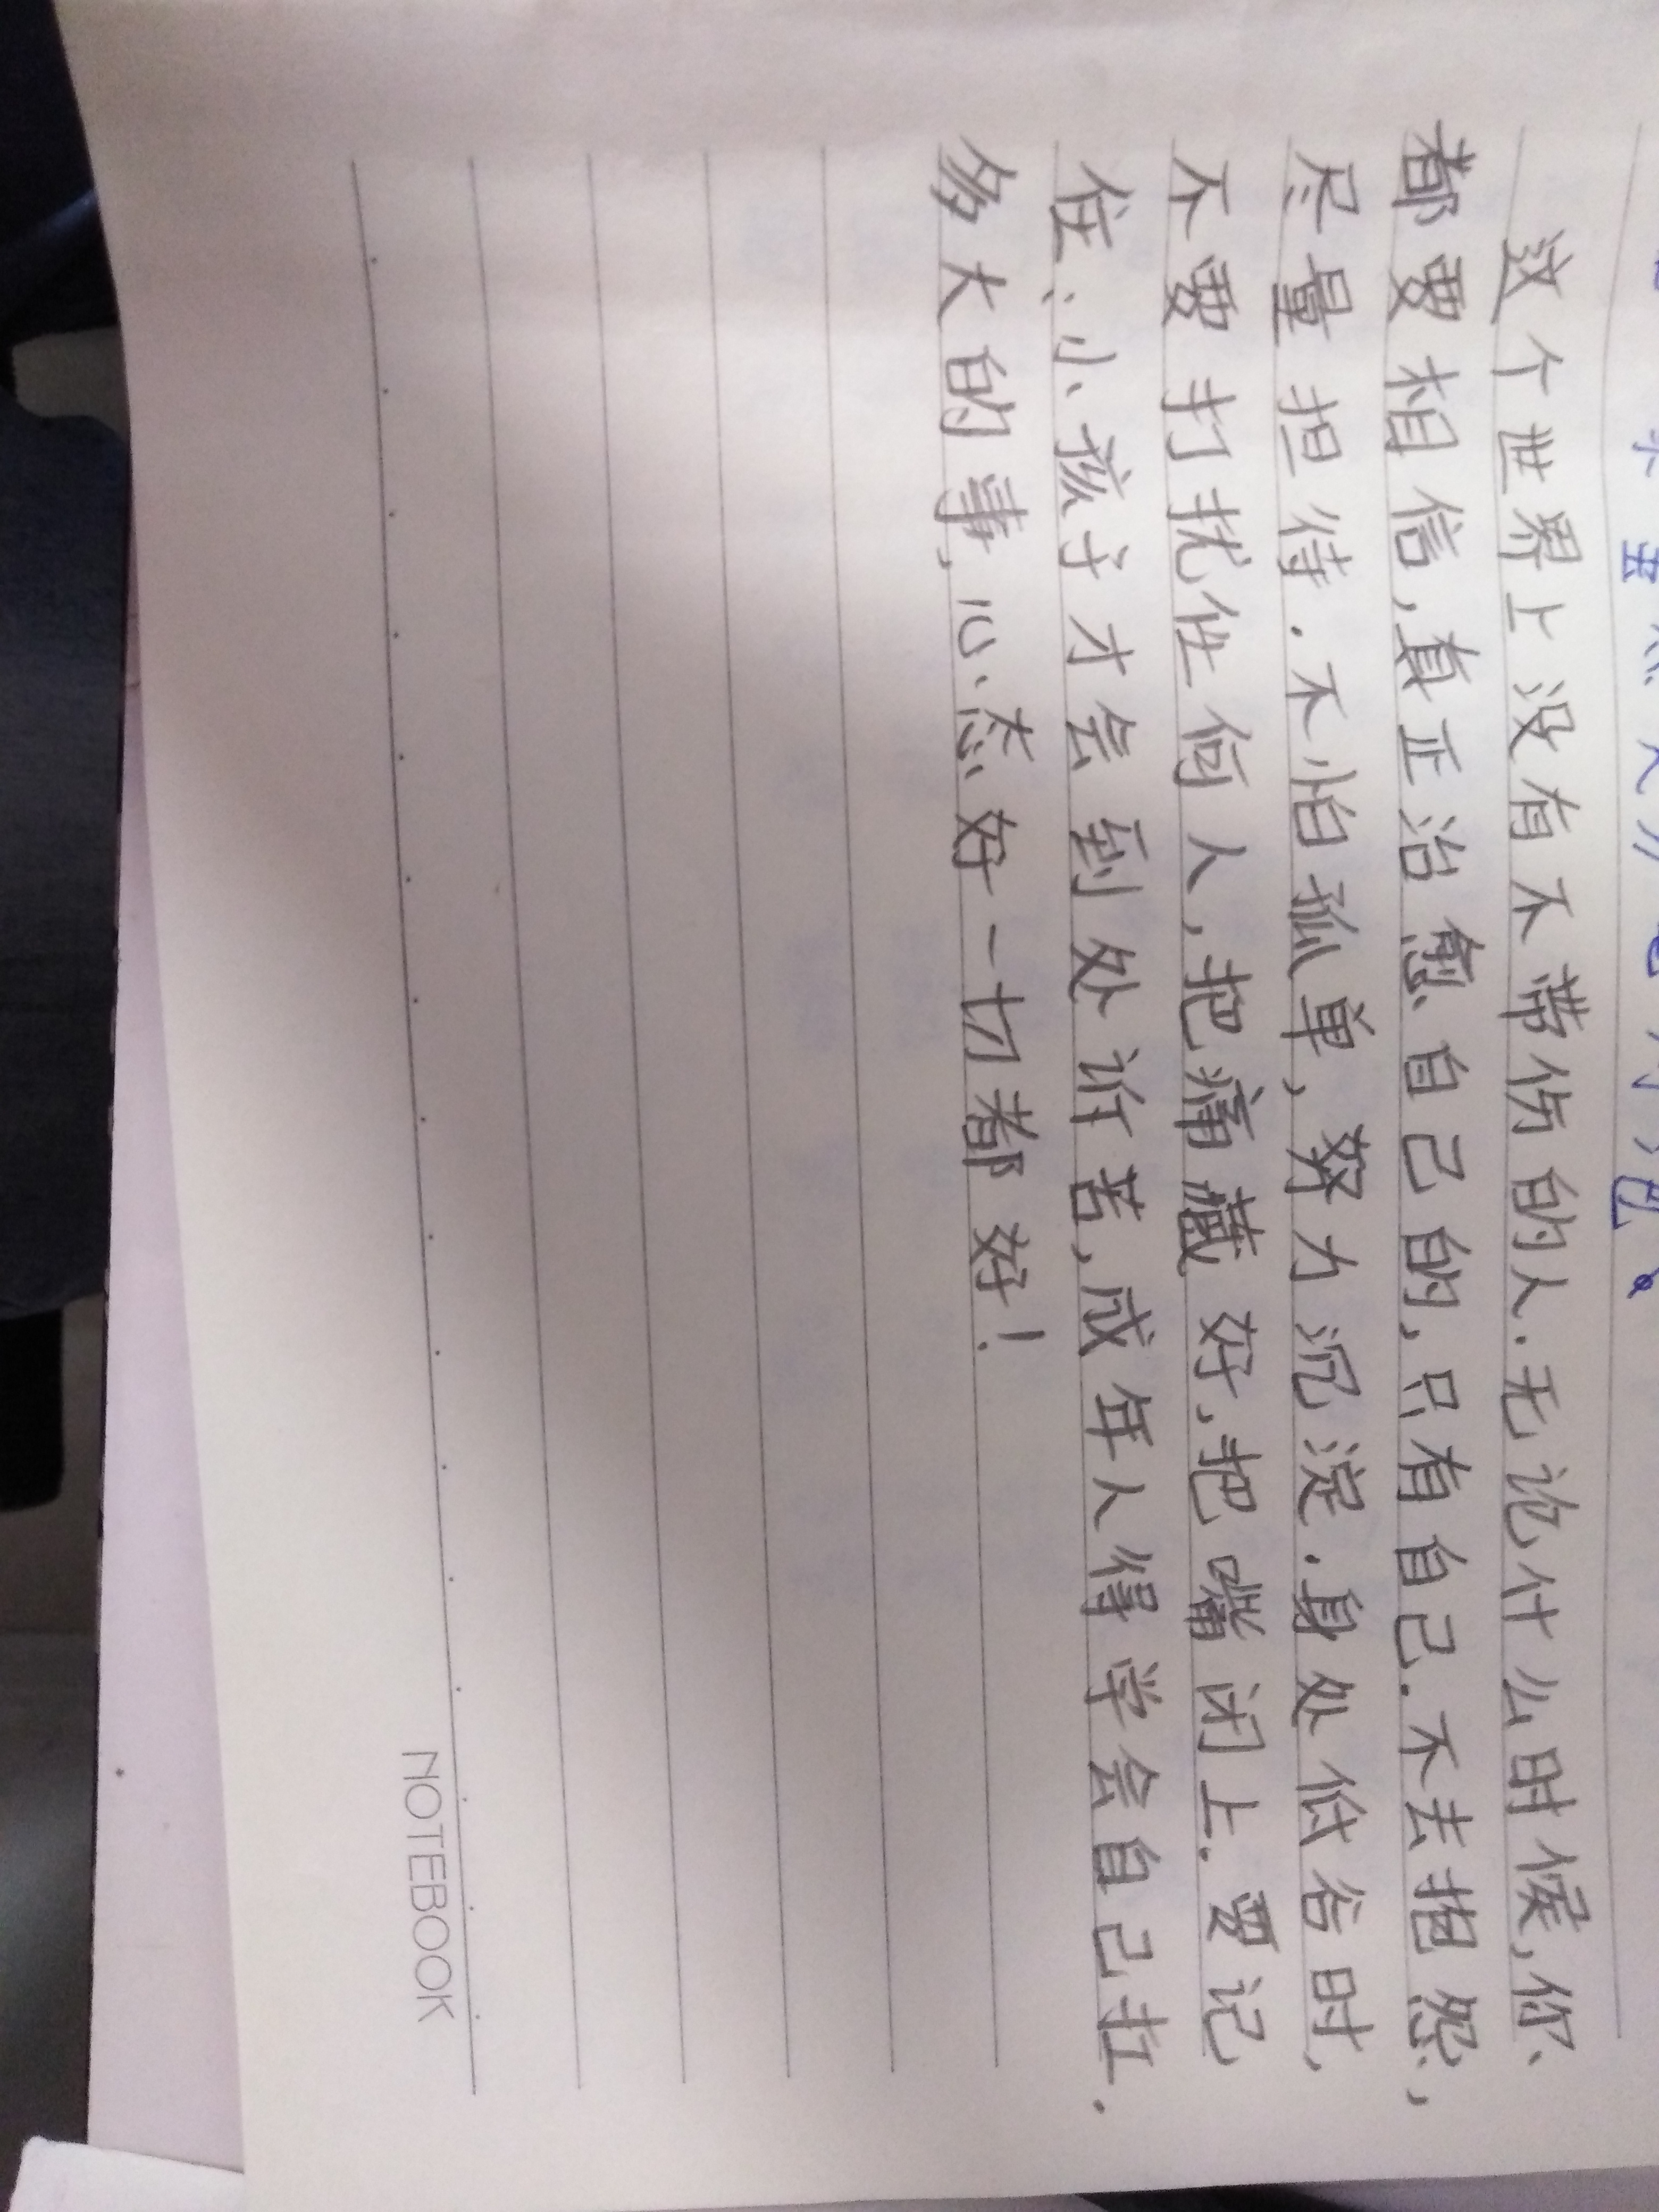 这个世界上没有不带伤的人.无论什么时候,你
都要相信,真正治愈自己的,只有自己.不去抱怨,
尽量担待.不怕孤单,努力沉淀.身处低谷时,
不要打扰任何人,把痛藏好,把嘴闭上.要记
住:小孩子才会到处诉苦,成年人得学会自己扛.
多大的事,心态好一切都好!
NOTEBOOK